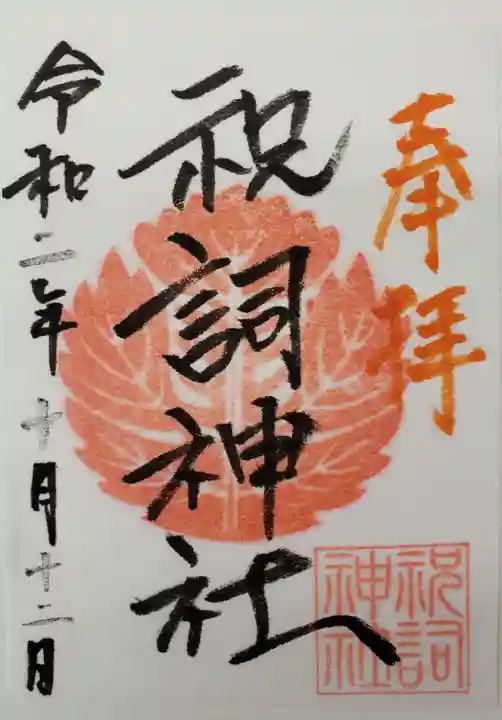 奉拝
祝詞神社
令和二年十月十二日
祝詞
神社